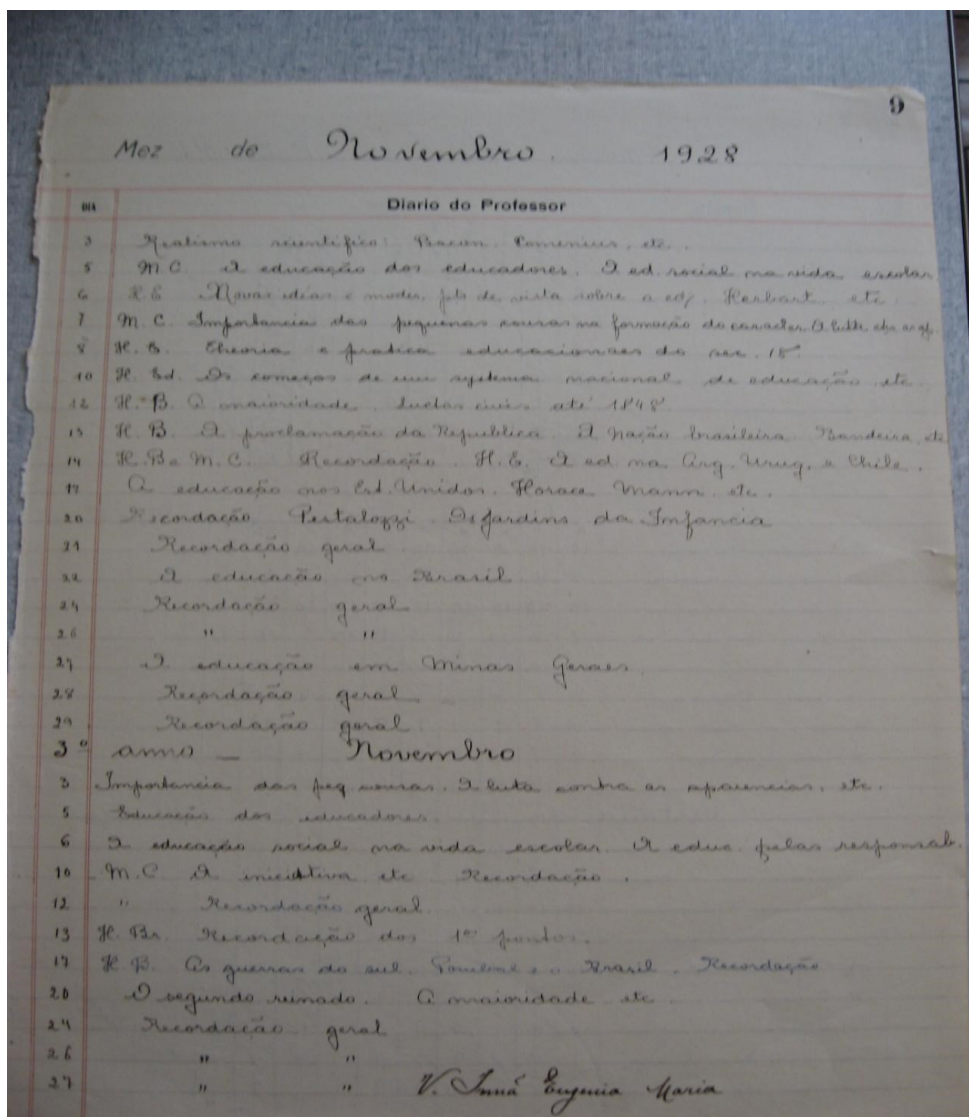 9
Mez de Novembro. 1928
DIA Diario do Professor
3 Realismo scientifico: Bacon. Comenius, etc.
5 M.C. A educação dos educadores. A ed. social na vida escolar
6 H.E. Novas idéas e moder. pts de vista sobre a ed. Herbart, etc.
7 M.C. Importancia das pequenas cousas na formação do caracter. A lucta
8 H.E. Theoria e pratica educacionaes do sec. 18
10 H. Ed. Os começos de um systema nacional de educação etc.
12 H.B. A maioridade. Luctas civis até 1848
13 H.B. A proclamação da Republica. A Nação brasileira. Bandeira, etc
14 H.B e M.C. Recordação. H.E. A ed na Arg. Urug. e Chile.
17 A educação nos Est. Unidos. Horace Mann. etc.
20 Recordação Pestalozzi. Os jardins da Infancia
21 Recordação geral.
22 A educação no Brasil
24 Recordação geral
26 " "
27 A educação em Minas Geraes.
28 Recordação geral
29 Recordação geral.
3º anno — Novembro
3 Importancia das peq. cousas. A luta contra as aparencias, etc.
5 Educação dos educadores.
6 A educação social na vida escolar. A educ. pelas responsab.
10 M.C. A iniciativa etc Recordação.
12 " Recordação geral.
13 H. Br. Recordação dos 1os pontos.
17 H.B. As guerras do sul. Pombal e o Brasil. Recordação
20 O segundo reinado. A maioridade etc.
24 Recordação geral
26 " "
27 " " V. Irmã Eugenia Maria